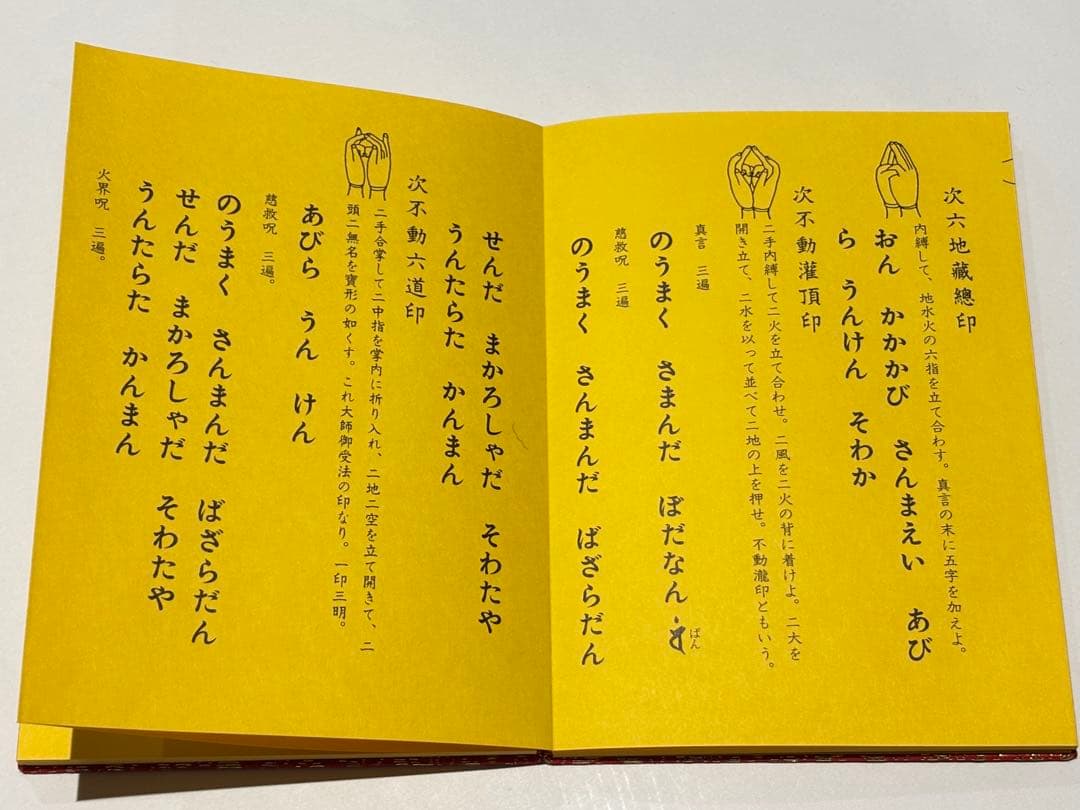 次六地藏總印
内縛して、地水火の六指を立て合わす。真言の末に五字を加えよ。
おん　かかかび　さんまえい　あび
ら　うんけん　そわか
次不動灌頂印
二手内縛して二火を立て合わせ。二風を二火の背に着けよ。二大を
開き立て、二水を以って並べて二地の上を押せ。不動瀧印ともいう。
真言　三遍
のうまく　さまんだ　ぼだなん　ばん
慈救呪　三遍
のうまく　さんまんだ　ばざらだん
せんだ　まかろしゃだ　そわたや
うんたらた　かんまん
次不動六道印
二手合掌して二中指を掌内に折り入れ、二地二空を立て開きて、二
頭二無名を寶形の如くす。これ大師御受法の印なり。一印三明。
あびら　うん　けん
慈救呪　三遍。
のうまく　さんまんだ　ばざらだん
せんだ　まかろしゃだ　そわたや
うんたらた　かんまん
火界呪　三遍。